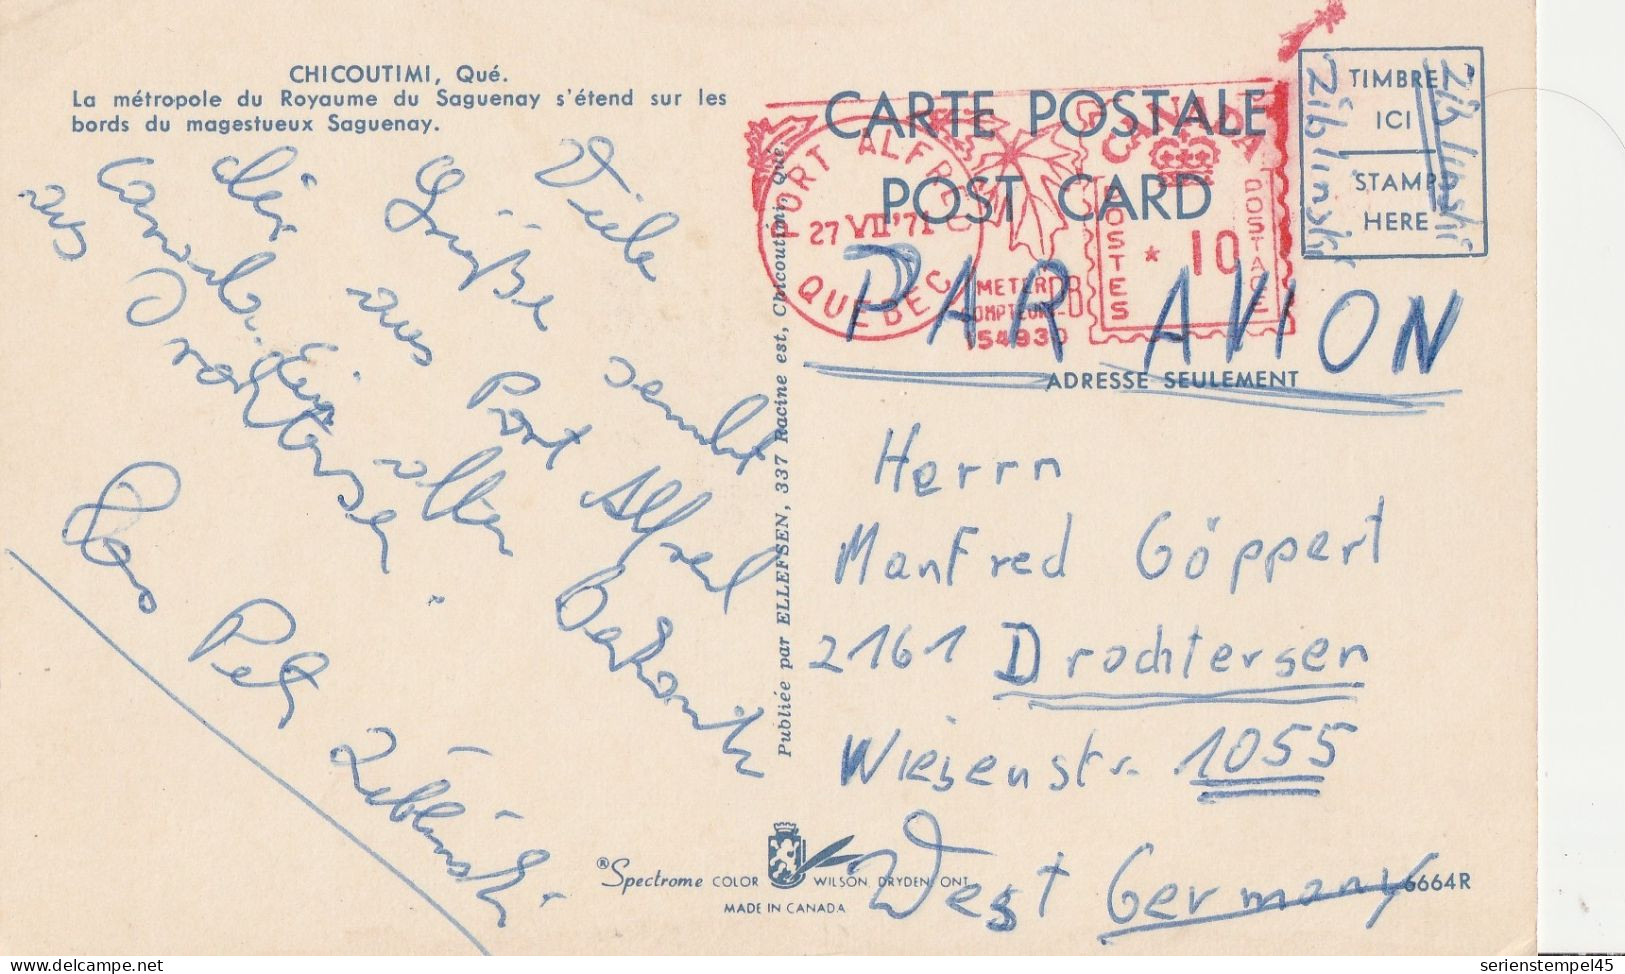 CHICOUTIMI, Qué.
La métropole du Royaume du Saguenay s'étend sur les
bords du magestueux Saguenay.
Viele Grüße sendet
dir aus Port Alfred
Canada. Ein alter
aus Drochtersen.
Peter Ziblinski
Publiée par ELLEFSEN, 337 Racine est, Chicoutimi, Qué.
®Spectrome COLOR WILSON DRYDEN, ONT.
MADE IN CANADA
CARTE POSTALE
POST CARD
PORT ALFRED
27 VII '71
QUEBEC
METER
COMPTEUR
PB
CANADA
POSTES
* 10
POSTAGE
TIMBRE
ICI
STAMP
HERE
Ziblinski
PAR AVION
ADRESSE SEULEMENT
Herrn
Manfred Göppert
2161 Drochtersen
Wiesenstr. 1055
West Germany
6664R
serienstempel45